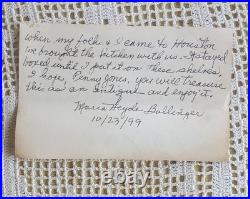 when my folk & I came to Houston
we brought the kitchen with us. It stayed
boxed until I put it on these shelves.
I hope, Penny Jones, you will treasure
this as an Antique and enjoy it.
Maria Heyde Bollinger
10/23/99